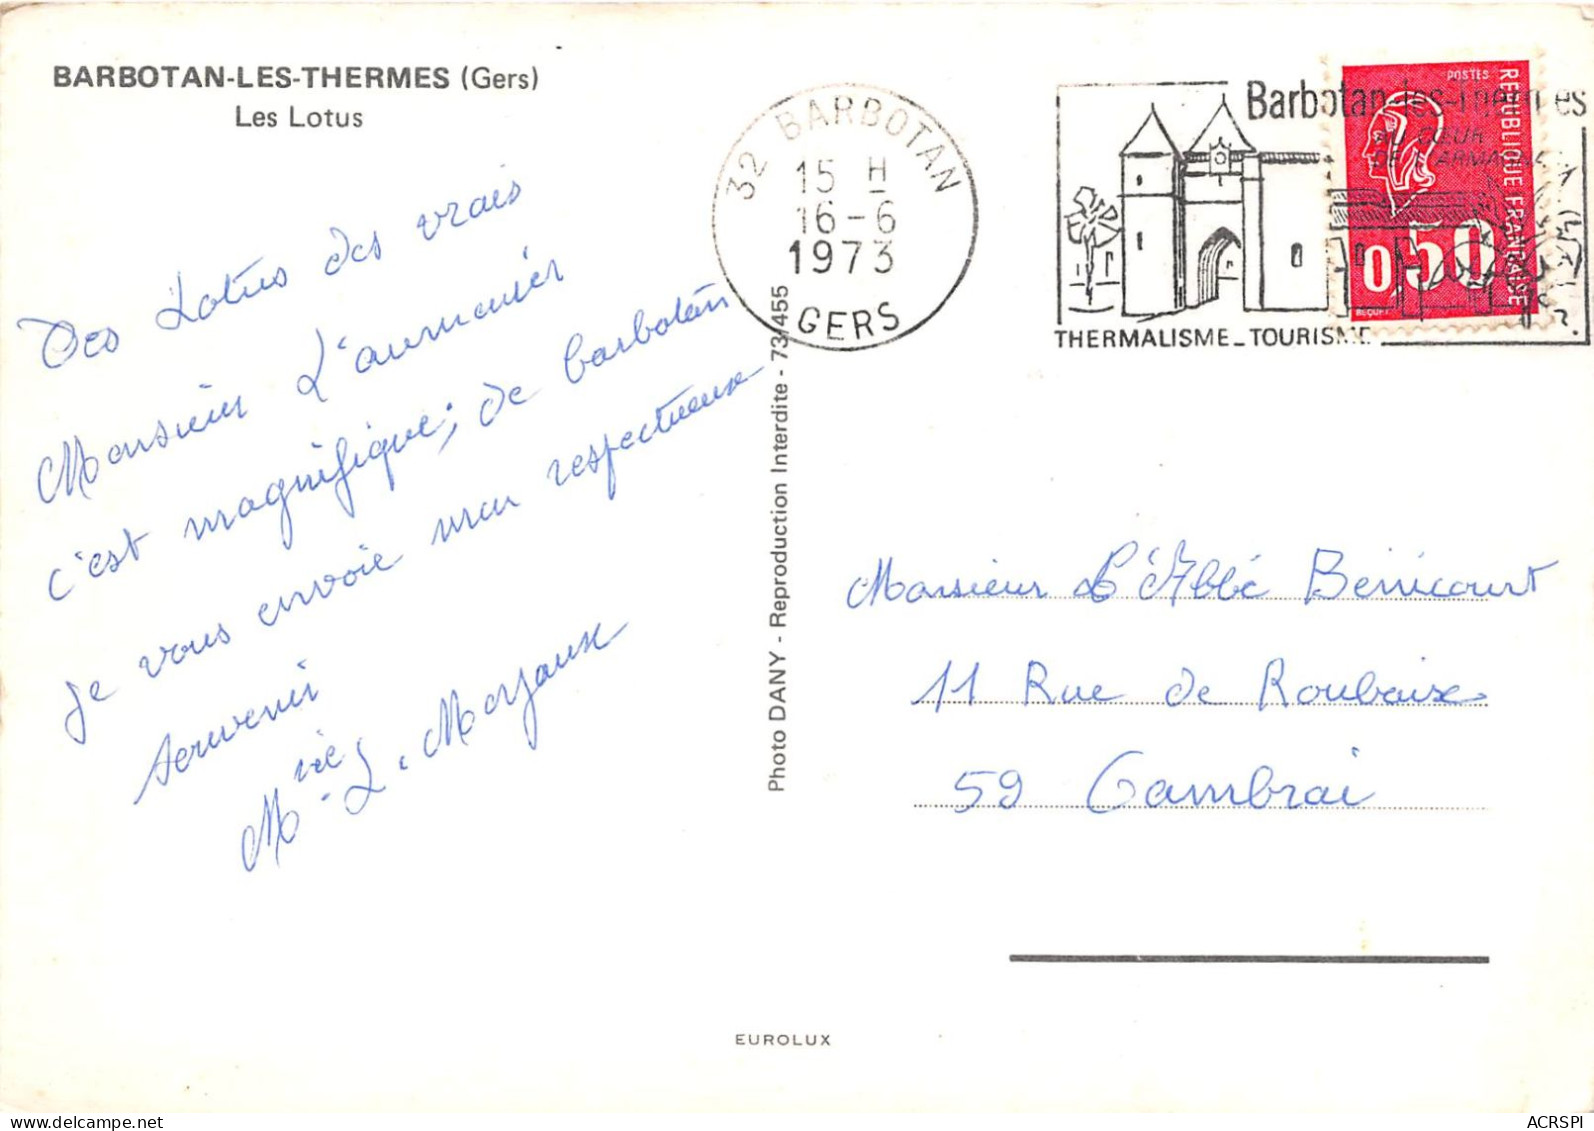 BARBOTAN-LES-THERMES (Gers)
Les Lotus
Des Lotus des vrais
Monsieur L'aumunier
c'est magnifique, de barbotan
je vous envoie mon respectueux
souvenir
M. L. Marjaux
Photo DANY - Reproduction Interdite - 73/455
32 BARBOTAN
15 H
16-6
1973
GERS
Barbotan-les-Thermes
AU CŒUR
DE L'ARMAGNAC
THERMALISME_TOURISME
POSTES
REPUBLIQUE FRANÇAISE
0,50
BEQUET
Monsieur L'Abbé
11 Rue de Roubaix
59 Cambrai
EUROLUX
ACRSPI